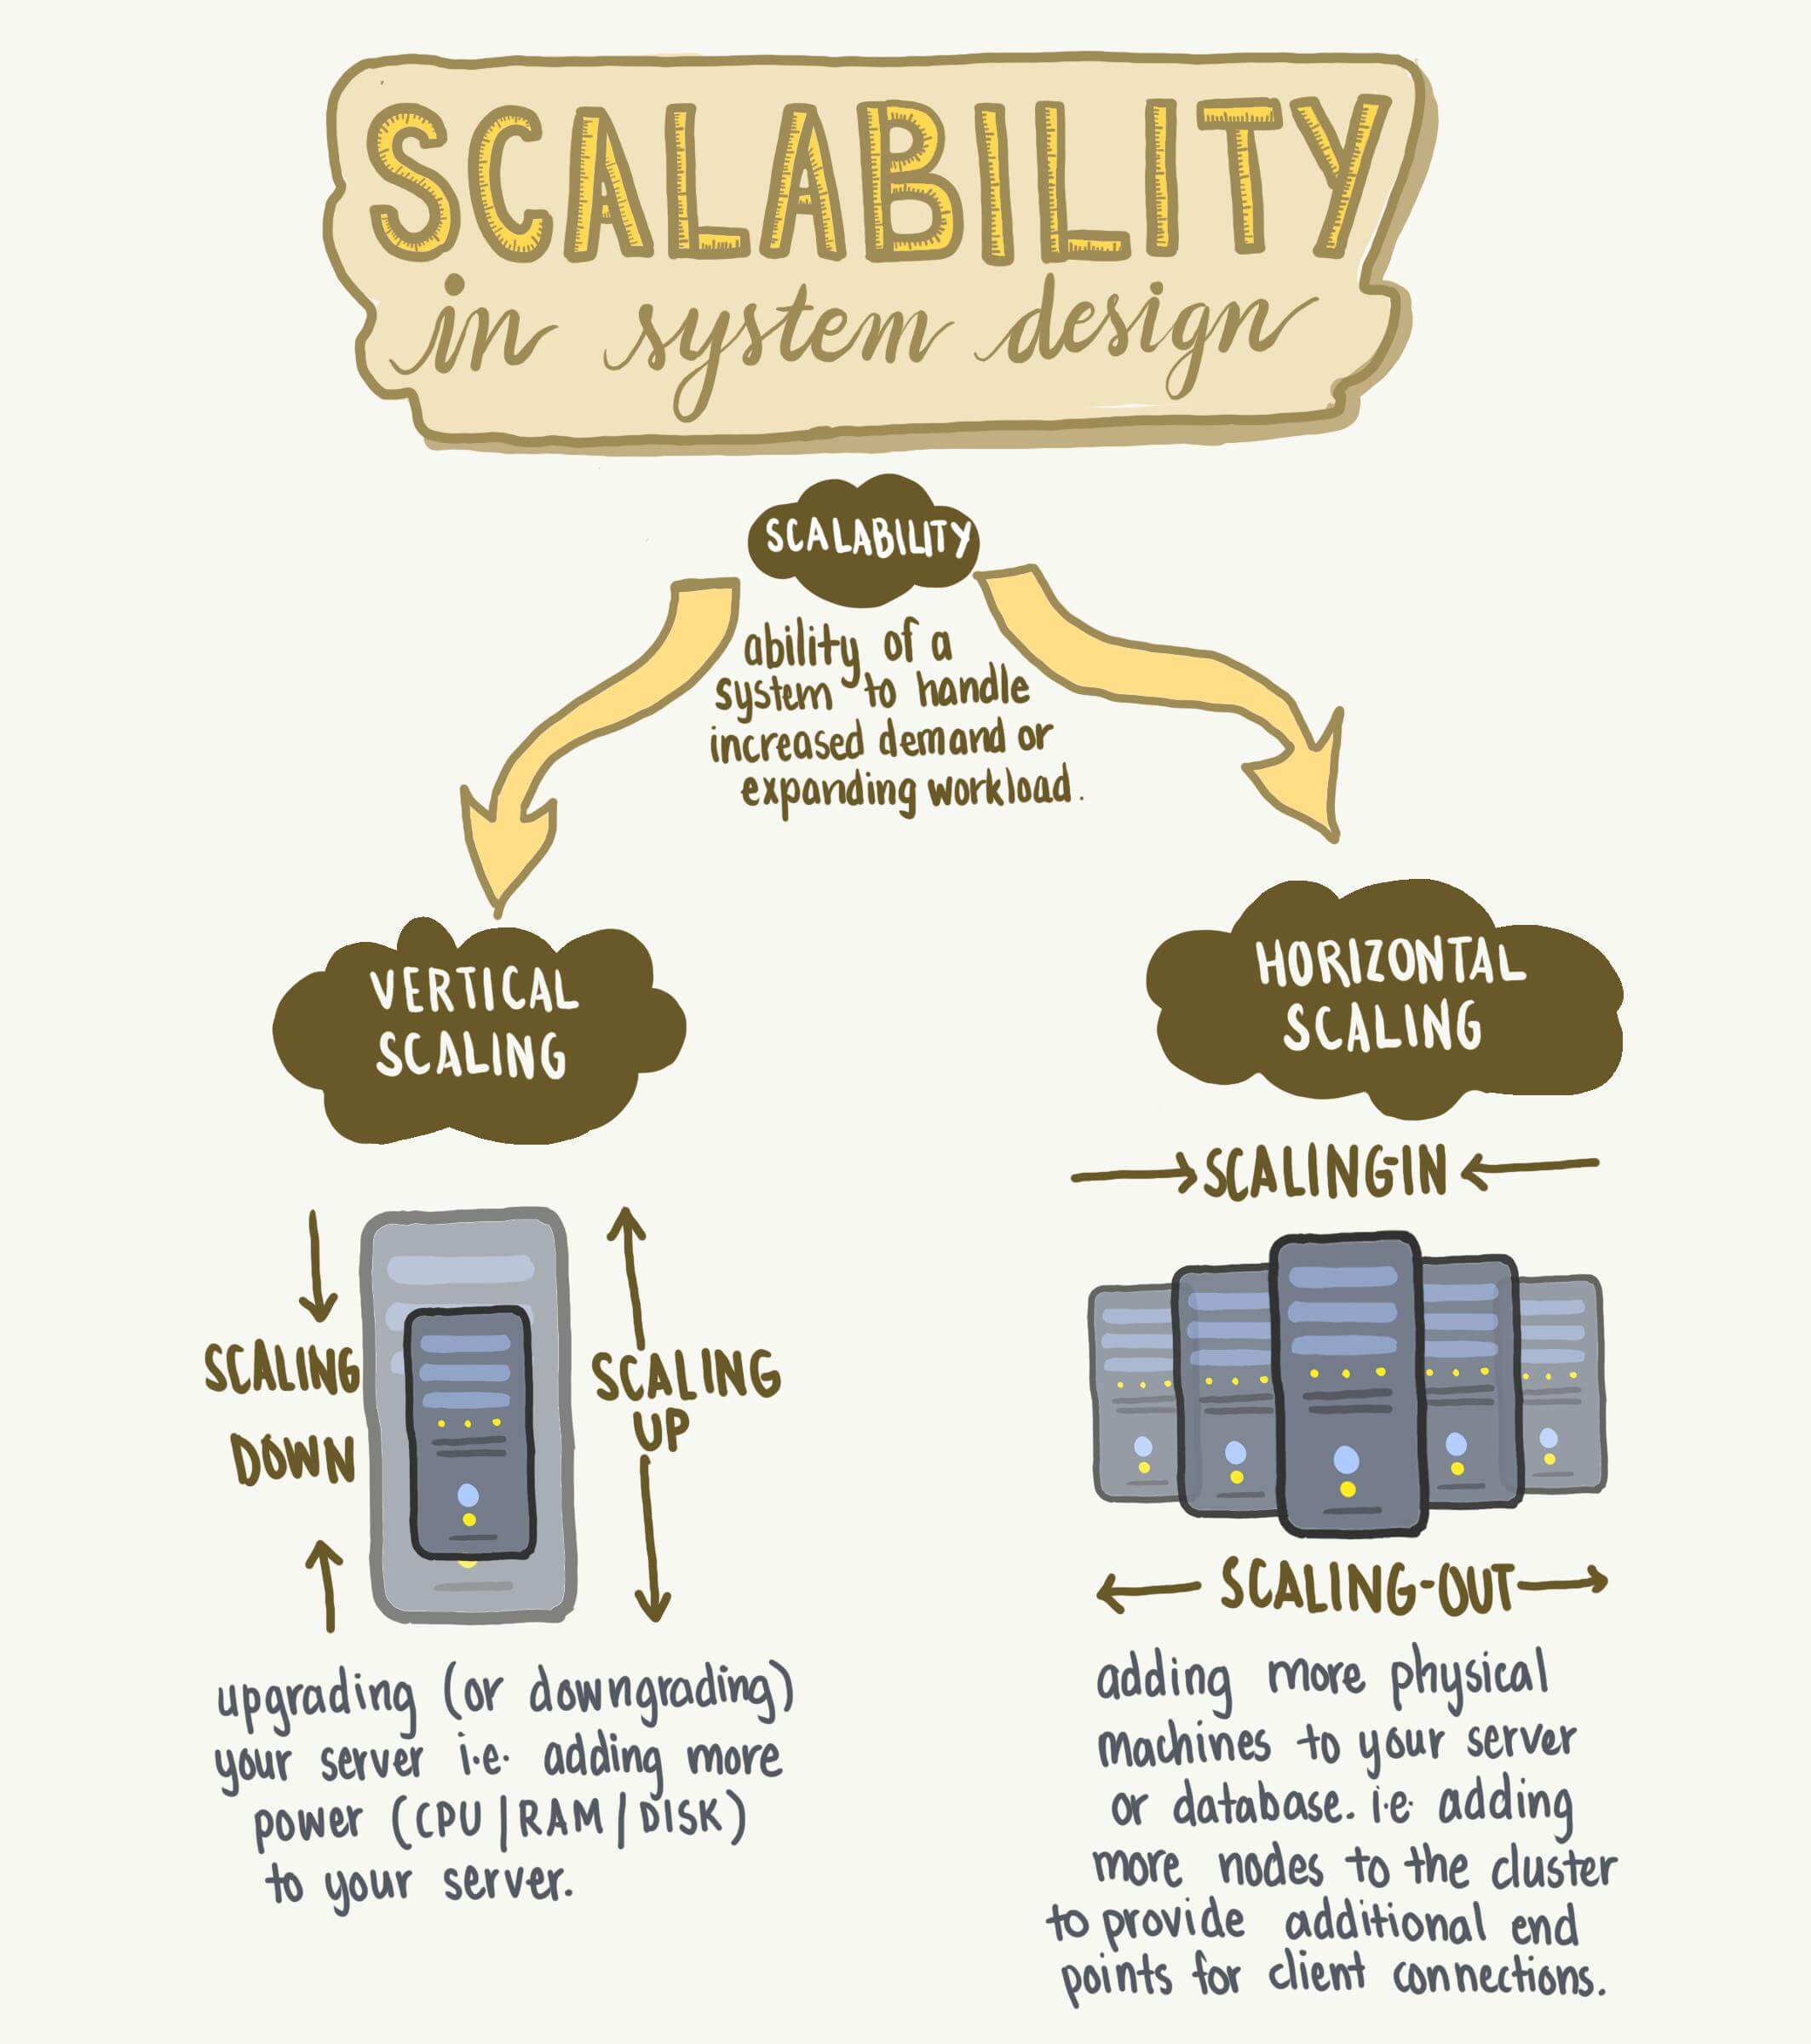 SCALABILITY
in system design
SCALABILITY
ability of a
system to handle
increased demand or
expanding workload.
VERTICAL
SCALING
SCALING
DOWN
SCALING
UP
upgrading (or downgrading)
your server i.e. adding more
power (CPU|RAM|DISK)
to your server.
HORIZONTAL
SCALING
SCALING-IN
SCALING-OUT
adding more physical
machines to your server
or database. i.e adding
more nodes to the cluster
to provide additional end
points for client connections.